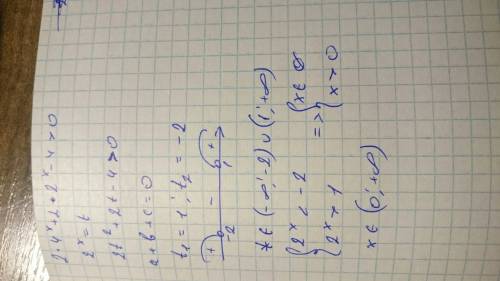 2·4ˣ+2·2ˣ-4>0
2ˣ=t
2t²+2t-4>0
a+b+c=0
t₁=1; t₂=-2
+ -2 - 1 +
t∈(-∞;-2)∪(1;+∞)
{2ˣ<-2 {x∈∅
{2ˣ>1 => {x>0
x∈(0;+∞)